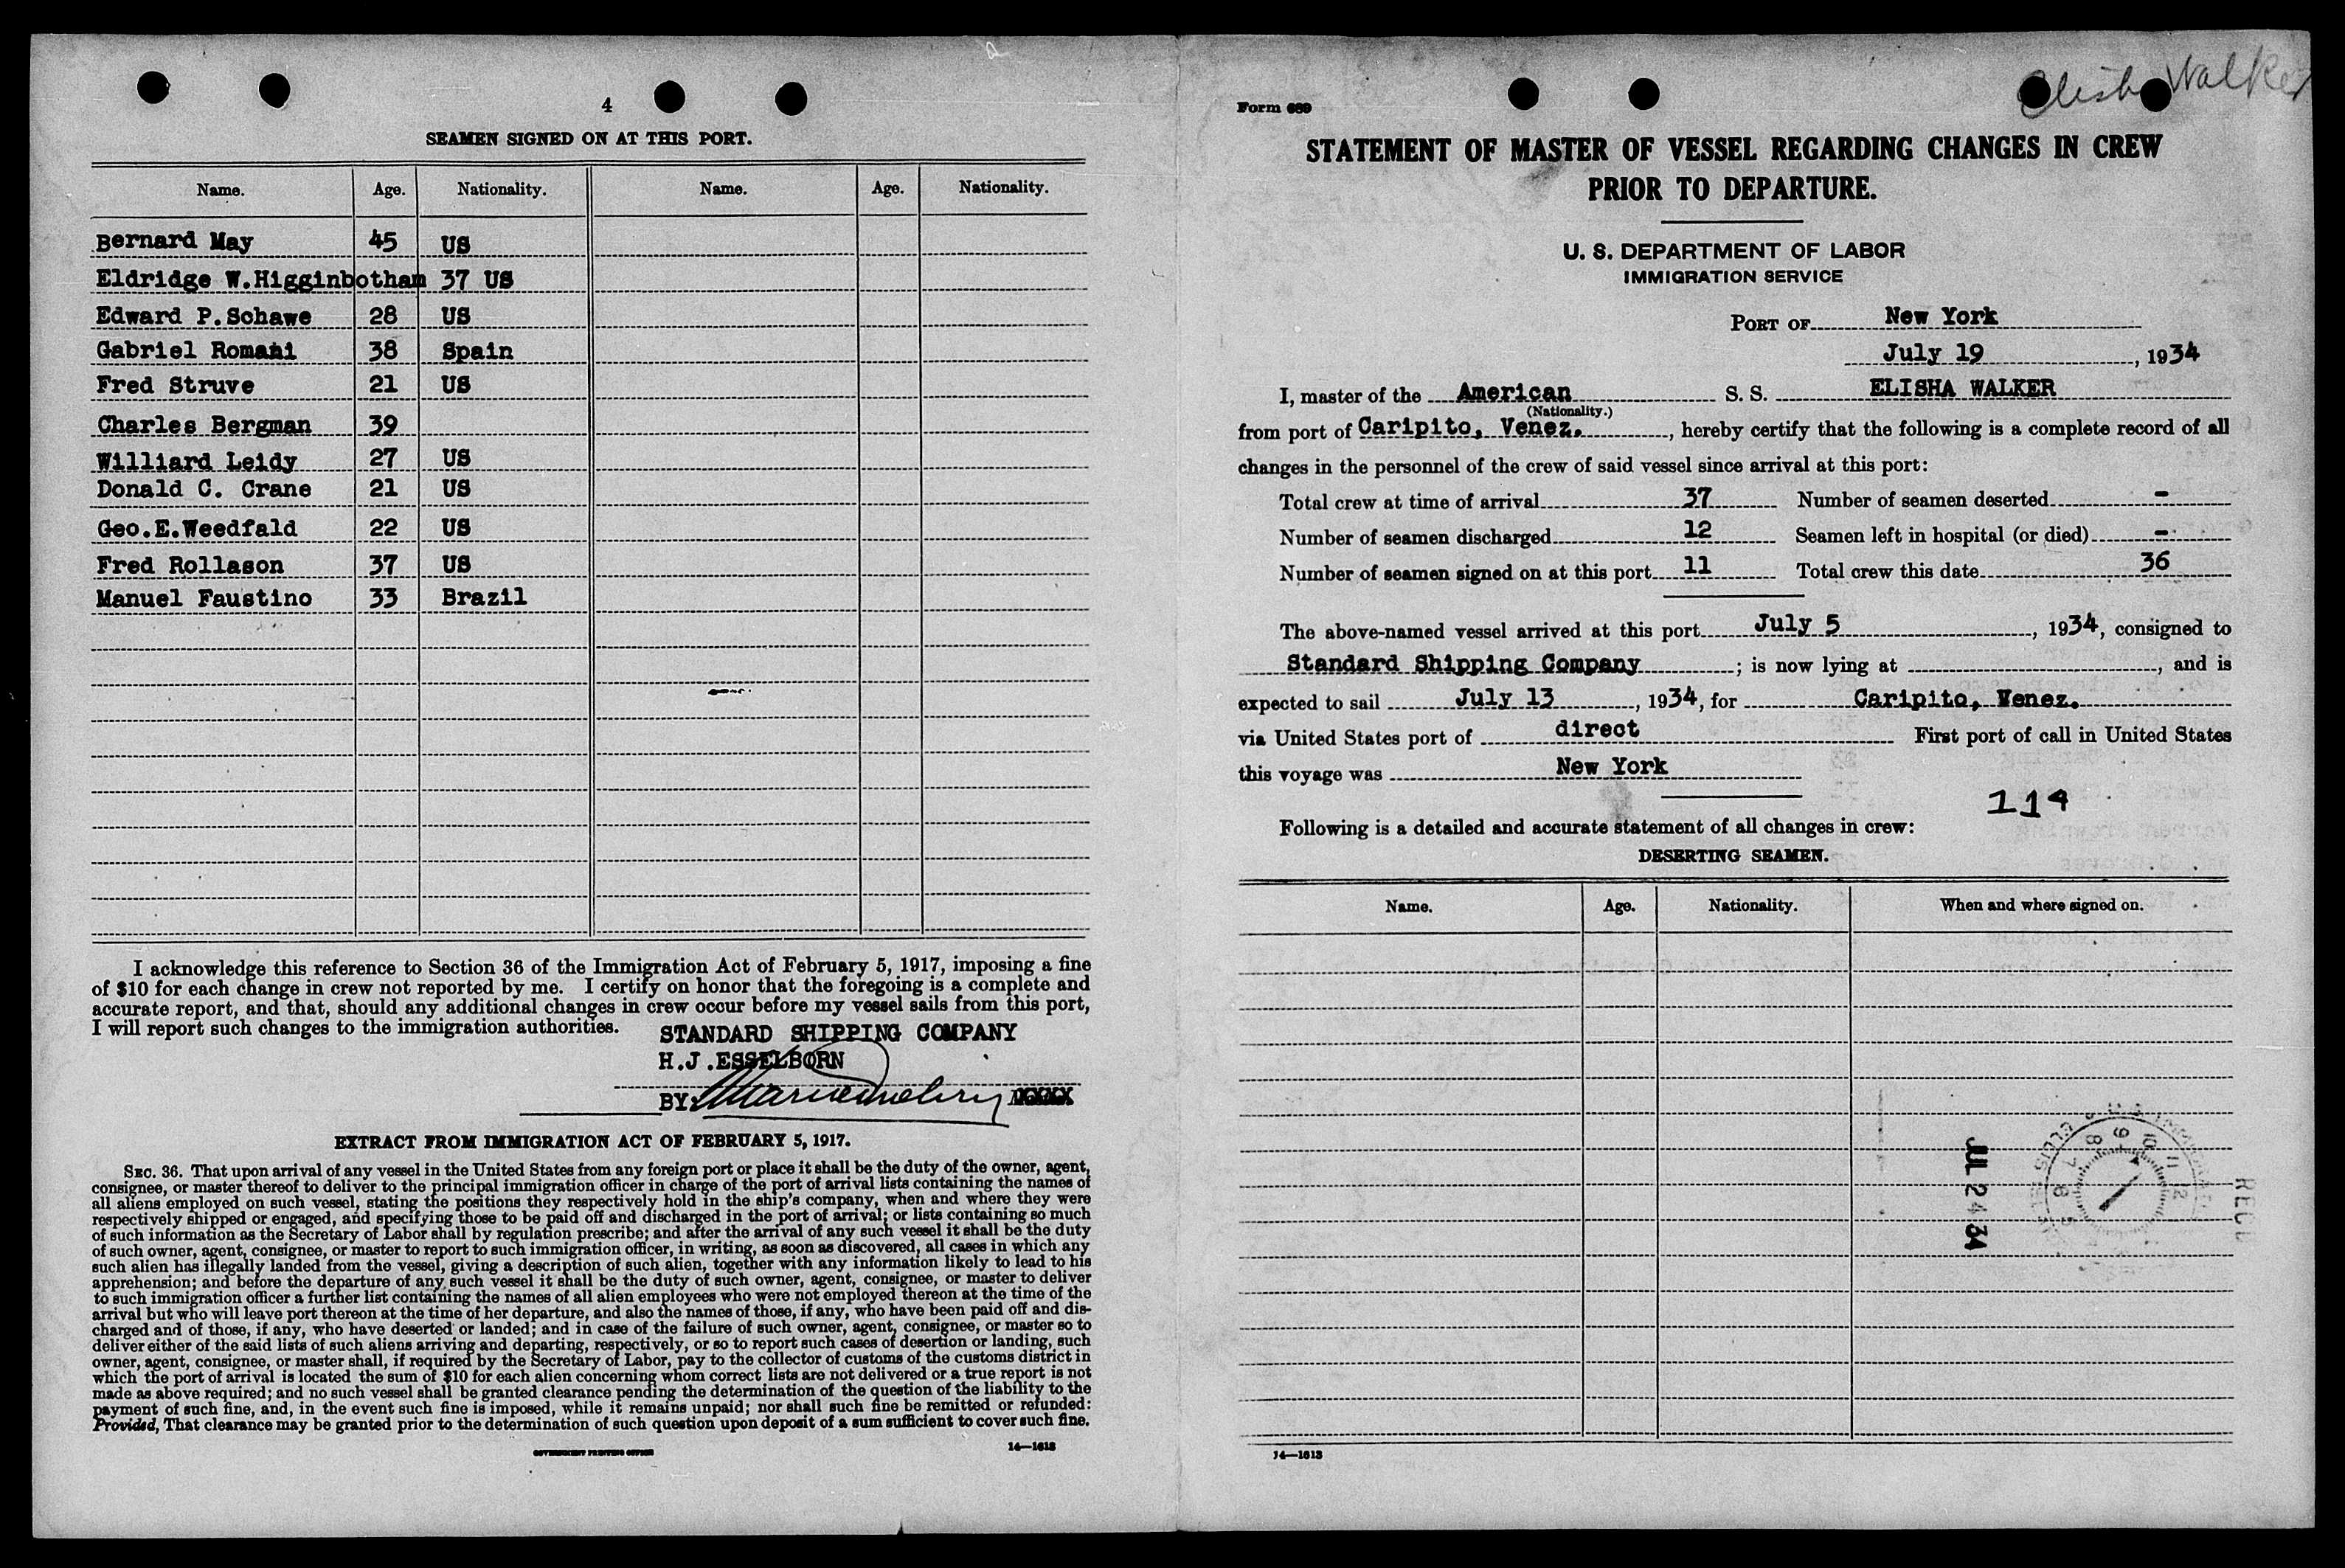 4
SEAMEN SIGNED ON AT THIS PORT.
Name. Age. Nationality. Name. Age. Nationality.
Bernard May 45 US
Eldridge W.Higginbotham 37 US
Edward P.Schawe 28 US
Gabriel Romani 38 Spain
Fred Struve 21 US
Charles Bergman 39
Williard Leidy 27 US
Donald C. Crane 21 US
Geo.E.Weedfald 22 US
Fred Rollason 37 US
Manuel Faustino 33 Brazil
I acknowledge this reference to Section 36 of the Immigration Act of February 5, 1917, imposing a fine
of $10 for each change in crew not reported by me. I certify on honor that the foregoing is a complete and
accurate report, and that, should any additional changes in crew occur before my vessel sails from this port,
I will report such changes to the immigration authorities.
STANDARD SHIPPING COMPANY
H.J.ESSELBORN
BY:
EXTRACT FROM IMMIGRATION ACT OF FEBRUARY 5, 1917.
SEC. 36. That upon arrival of any vessel in the United States from any foreign port or place it shall be the duty of the owner, agent,
consignee, or master thereof to deliver to the principal immigration officer in charge of the port of arrival lists containing the names of
all aliens employed on such vessel, stating the positions they respectively hold in the ship's company, when and where they were
respectively shipped or engaged, and specifying those to be paid off and discharged in the port of arrival; or lists containing so much
of such information as the Secretary of Labor shall by regulation prescribe; and after the arrival of any such vessel it shall be the duty
of such owner, agent, consignee, or master to report to such immigration officer, in writing, as soon as discovered, all cases in which any
such alien has illegally landed from the vessel, giving a description of such alien, together with any information likely to lead to his
apprehension; and before the departure of any such vessel it shall be the duty of such owner, agent, consignee, or master to deliver
to such immigration officer a further list containing the names of all alien employees who were not employed thereon at the time of the
arrival but who will leave port thereon at the time of her departure, and also the names of those, if any, who have been paid off and dis-
charged and of those, if any, who have deserted or landed; and in case of the failure of such owner, agent, consignee, or master so to
deliver either of the said lists of such aliens arriving and departing, respectively, or so to report such cases of desertion or landing, such
owner, agent, consignee, or master shall, if required by the Secretary of Labor, pay to the collector of customs of the customs district in
which the port of arrival is located the sum of $10 for each alien concerning whom correct lists are not delivered or a true report is not
made as above required; and no such vessel shall be granted clearance pending the determination of the question of the liability to the
payment of such fine, and, in the event such fine is imposed, while it remains unpaid; nor shall such fine be remitted or refunded:
Provided, That clearance may be granted prior to the determination of such question upon deposit of a sum sufficient to cover such fine.
GOVERNMENT PRINTING OFFICE
14—1613
Elisha Walker
Form 689
STATEMENT OF MASTER OF VESSEL REGARDING CHANGES IN CREW
PRIOR TO DEPARTURE.
U. S. DEPARTMENT OF LABOR
IMMIGRATION SERVICE
PORT OF New York
July 19, 1934
I, master of the American S. S. ELISHA WALKER
(Nationality.)
from port of Caripito, Venez., hereby certify that the following is a complete record of all
changes in the personnel of the crew of said vessel since arrival at this port:
Total crew at time of arrival 37 Number of seamen deserted -
Number of seamen discharged 12 Seamen left in hospital (or died) -
Number of seamen signed on at this port 11 Total crew this date 36
The above-named vessel arrived at this port July 5, 1934, consigned to
Standard Shipping Company; is now lying at , and is
expected to sail July 13, 1934, for Caripito, Venez.
via United States port of direct First port of call in United States
this voyage was New York
114
Following is a detailed and accurate statement of all changes in crew:
DESERTING SEAMEN.
Name. Age. Nationality. When and where signed on.
JUL 24 34
14—1613